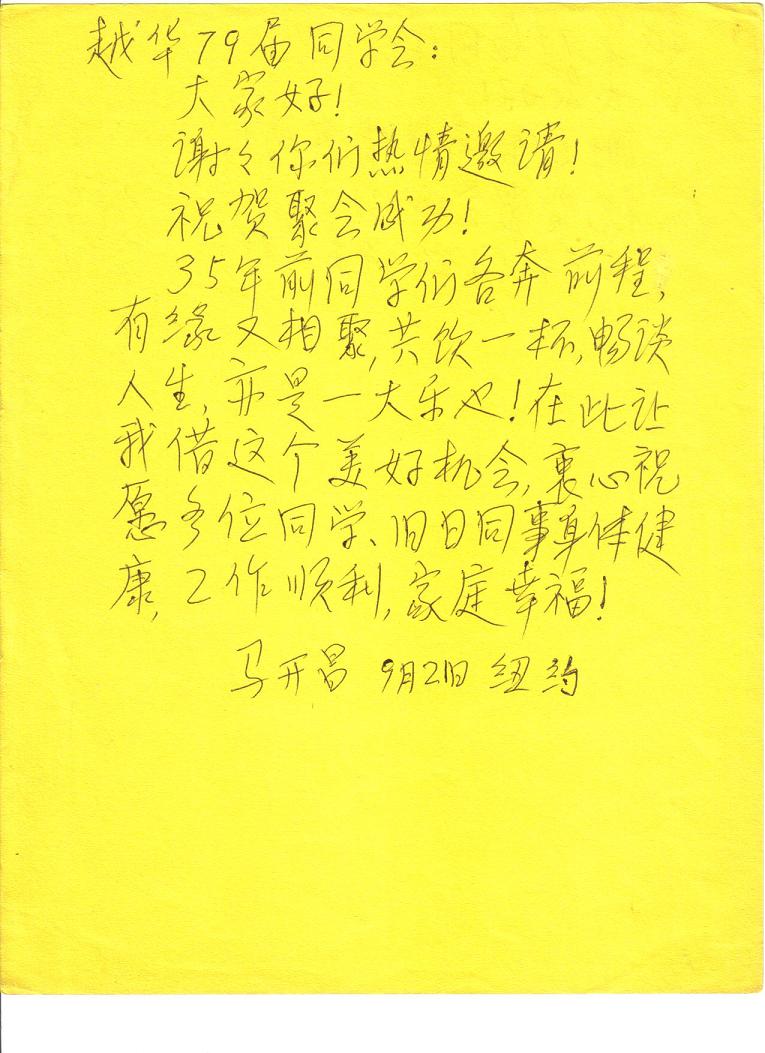 越华79届同学会:
大家好!
谢々你们热情邀请!
祝贺聚会成功!
35年前同学们各奔前程,
有缘又相聚,共饮一杯,畅谈
人生,亦是一大乐也!在此让
我借这个美好机会,衷心祝
愿各位同学、旧日同事身体健
康,工作顺利,家庭幸福!
马开昌 9月21日 纽约